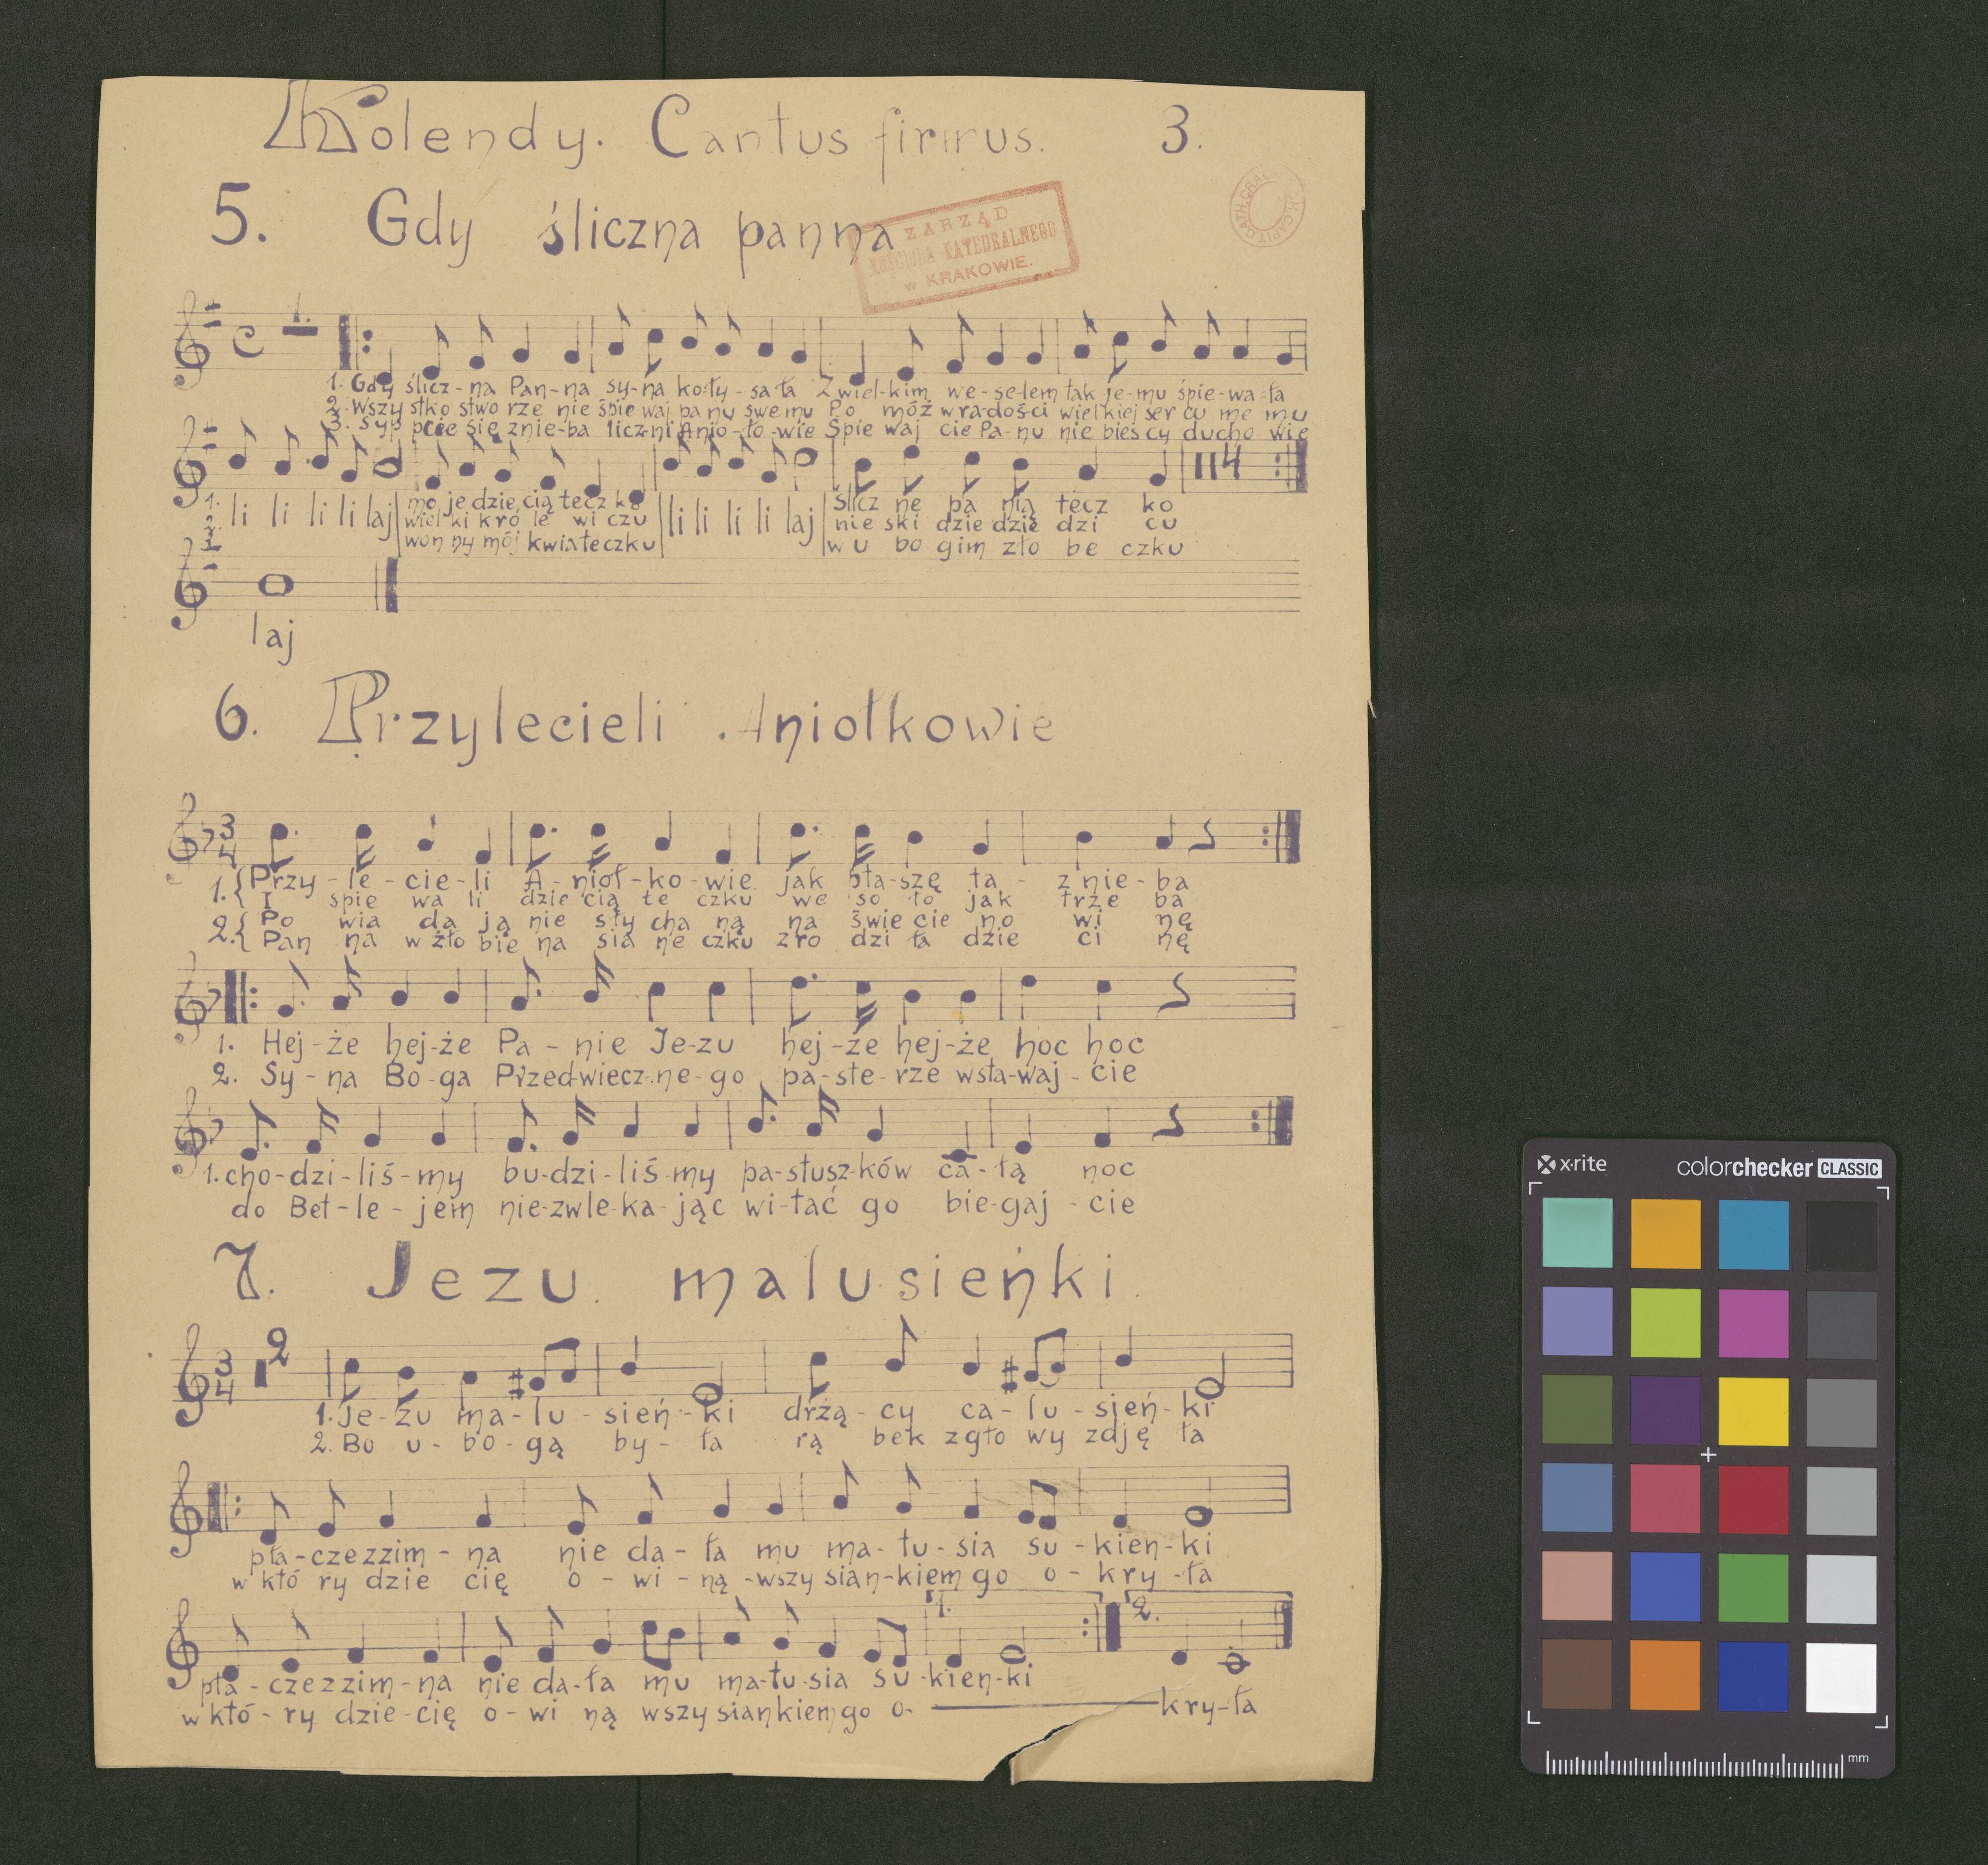 Kolendy. Cantus firmus. 3.
5. Gdy śliczna panna
ZARZĄD
KOŚCIOŁA KATEDRALNEGO
w KRAKOWIE.
1.
1. Gdy ślicz-na Pan-na sy-na ko-ły-sa-ła Z wiel-kim we-se-lem tak je-mu śpie-wa-ła
2. Wszy stko stwo rze nie śpie waj pa nu swe mu Po móż w rado-ś-ci wielkiej ser cu me mu
3. Syp pcie się z nie-ba licz-ni Anio-ło-wie Śpie waj cie Pa-nu nie bies cy ducho wie
4
1. li li li li laj mo je dzie cią tecz ko li li li li laj ślicz ne pa nią tecz ko
2. wiel ki kró le wi czu nie ski dzie dzie dzi cu
3. won ny mój kwia teczku w u bo gim żło be czku
laj
6. Przylecieli Aniołkowie
3/4
1. { Przy-le-cie-li A-nioł-ko-wie jak pta-szę ta- z nie-ba
I śpie wa li dzie cią te czku we so ło jak trze ba
2. { Po wia da ją nie sły cha ną na świe cie no wi nę
Pan na w żło bie na sia ne czku zro dzi ła dzie ci nę
1. Hej-że hej-że Pa-nie Je-zu hej-że hej-że hoc hoc
2. Sy-na Bo-ga Przed-wiecz-ne-go pa-ste-rze wsta-waj-cie
1. cho-dzi-liś-my bu-dzi-liś-my pa-stusz-ków ca-łą noc
do Bet-le-jem nie-zwle-ka-jąc wi-tać go bie-gaj-cie
7. Jezu malusieńki.
3/4 2
1. Je-zu ma-lu-sień-ki drżą-cy ca-lu-sień-ki
2. Bo u-bo-gą by-ła rą bek z gło wy zdję ła
pła-cze z zim-na nie da-ła mu ma-tu-sia su-kien-ki
w któ ry dzie cię o-wi-ną-wszy sian-kiem go o-kry-ła
1. 2.
pła-cze z zim-na nie da-ła mu ma-tu-sia su-kien-ki
w któ-ry dzie-cię o-wi ną wszy siankiem go o- kry-ła
x·rite colorchecker CLASSIC
mm